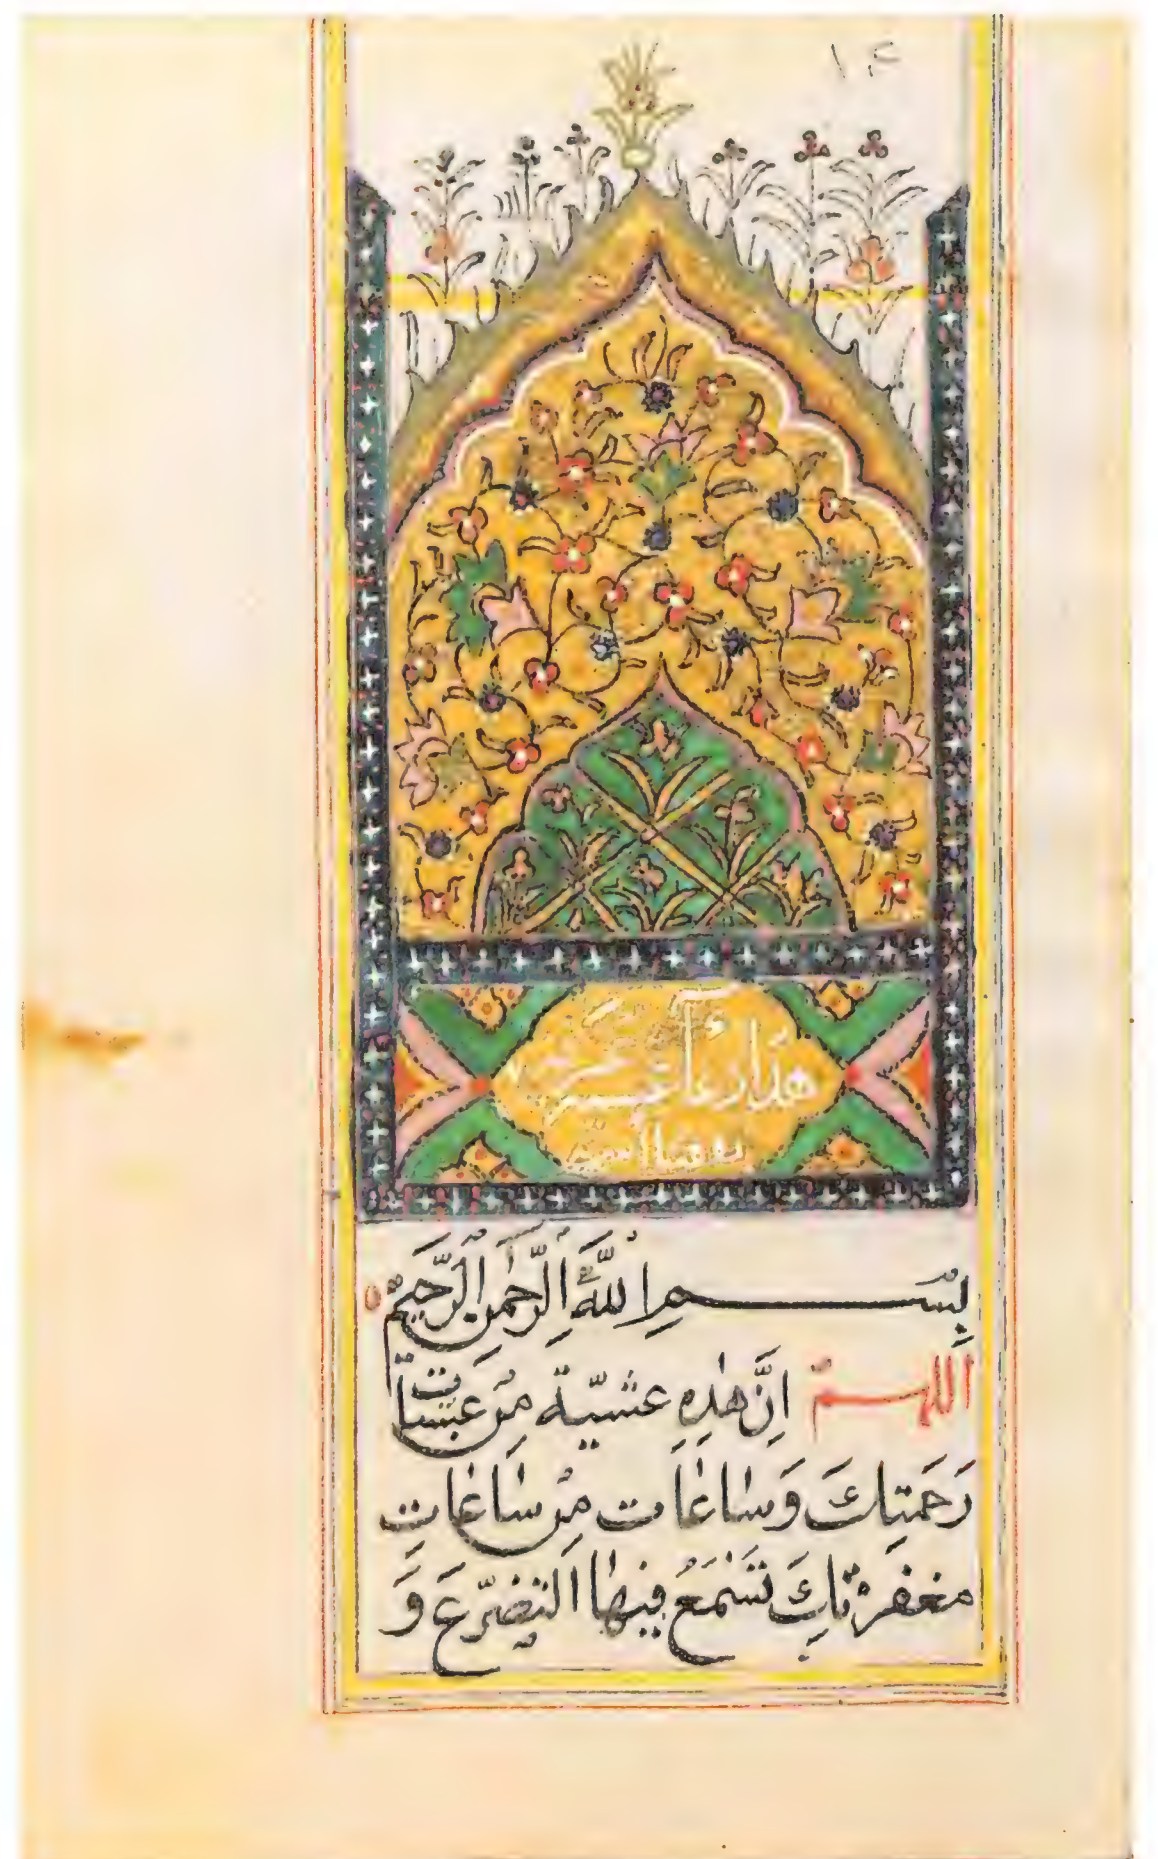 هذا دعاء
بِسْمِ اللّٰهِ الرَّحْمٰنِ الرَّحِيْمِ
اللهم اِنَّ هٰذِهِ عشيّة مِن عَشيات
رَحمَتِكَ وَسٰاعَات مِن سٰاعٰاتِ
مغفرتك تَسْمَعُ فيهٰا التضرّع وَ